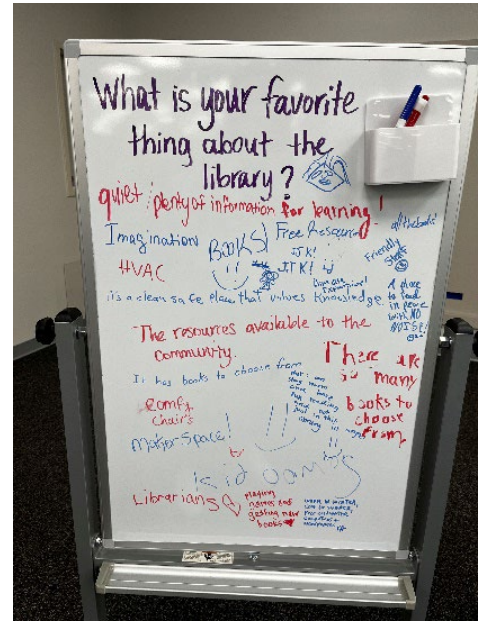 What is your favorite
thing about the
library?
quiet/plenty of information for learning!
all the books!
Imagination
BOOKS!
Free Resources
JJK!
JJK!
Friendly
Staff
HVAC
it's a clean safe place that values knowledge.
A place
to read
in peace
with NO
NOISE!
The resources available to the
community.
There are
so many
books to
choose
from
It has books to choose from
Comfy
Chairs
MakerSpace!
kid games
Librarians
Playing
games and
getting new
books